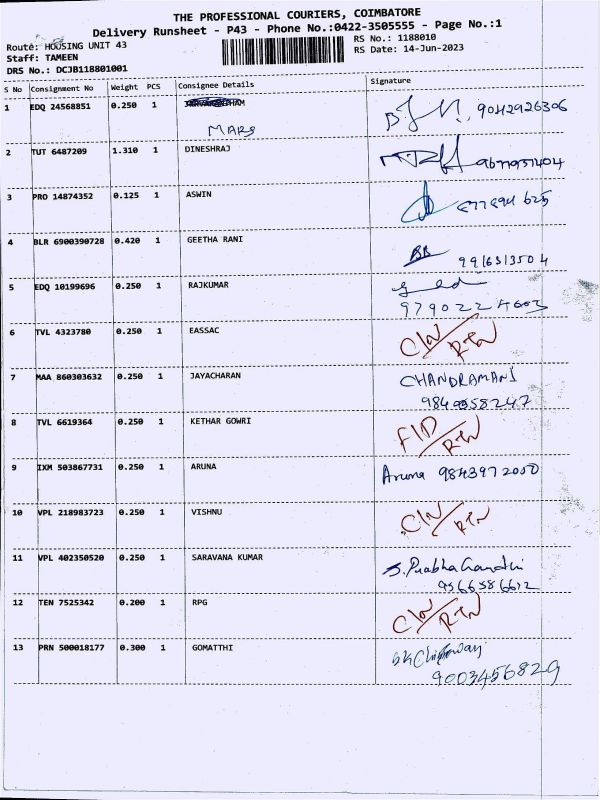 THE PROFESSIONAL COURIERS, COIMBATORE
Delivery Runsheet - P43 - Phone No.:0422-3505555 - Page No.:1
Route: HOUSING UNIT 43
RS No.: 1188010
Staff: TAMEEN
RS Date: 14-Jun-2023
DRS No.: DCJB118801001
S No Consignment No Weight PCS Consignee Details Signature
1 EDQ 24568851 0.250 1 9042926306
MARS
2 TUT 6487209 1.310 1 DINESHRAJ
3 PRO 14874352 0.125 1 ASWIN
4 BLR 6900390728 0.420 1 GEETHA RANI
9916313504
5 EDQ 10199696 0.250 1 RAJKUMAR
6 TVL 4323780 0.250 1 EASSAC
7 MAA 860303632 0.250 1 JAYACHARAN CHANDRAMANI
8 TVL 6619364 0.250 1 KETHAR GOWRI
9 IXM 503867731 0.250 1 ARUNA Aruna 9843972050
10 VPL 218983723 0.250 1 VISHNU
11 VPL 402350520 0.250 1 SARAVANA KUMAR
12 TEN 7525342 0.200 1 RPG
13 PRN 500018177 0.300 1 GOMATTHI
9003456829